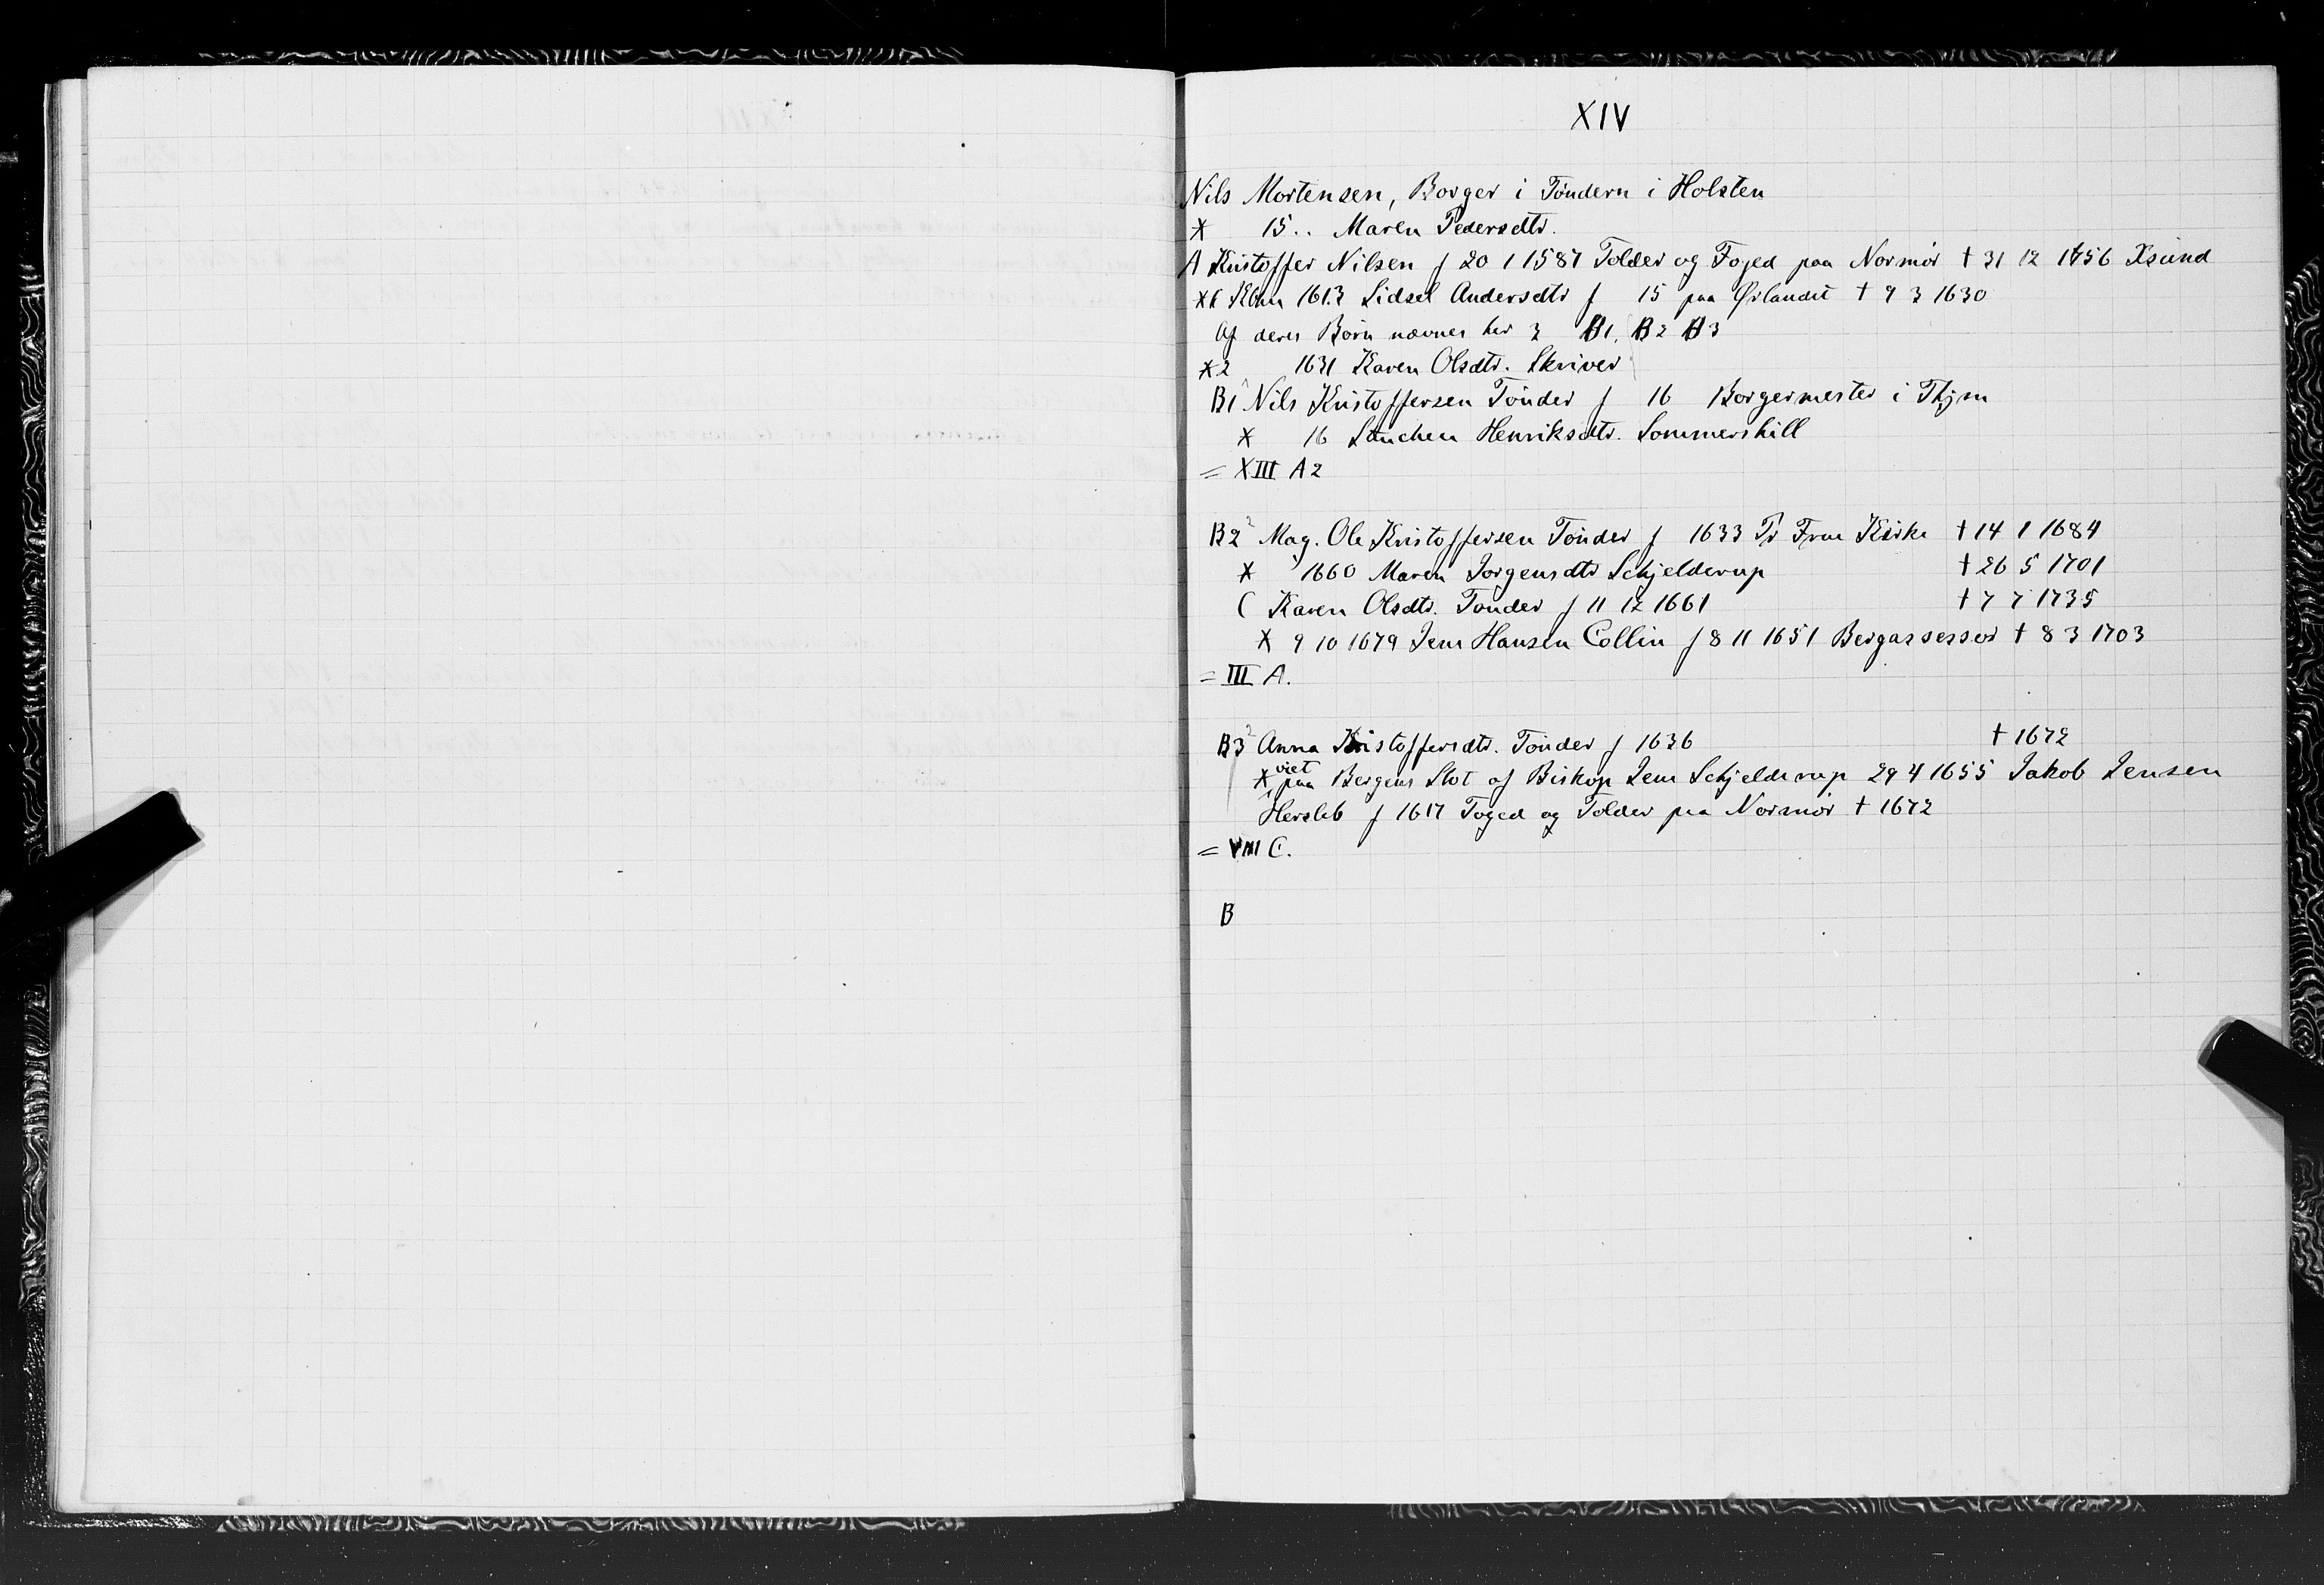 XIV
Nils Mortensen, Borger i Töndern i Holsten
X 15.. Maren Pedersdtr.
A Kristoffer Nilsen f 20 1 1587 Tolder og Foged paa Normör † 31 12 1656 Xsund
X1 1613 Lidsel Andersdtr f 15 paa Örlandet † 9 3 1630
Af deres Börn nævnes her 3 B1, B2 B3
X2 1631 Karen Olsdtr. Skriver
B1 Nils Kristoffersen Tönder f 16 Borgermester i Thjm
X 16 Henriksdtr. Sommershill
= XIII A2
B2 2 Mag. Ole Kristoffersen Tönder f 1633 Pr Frue Kirke † 14 1 1684
X 1660 Maren Jörgensdtr Schjelderup † 26 5 1701
C Karen Olsdtr. Tönder f 11 12 1661 † 7 7 1735
X 9 10 1679 Jens Hansen Collin f 8 11 1651 Bergassessor † 8 3 1703
= III A.
B3 2 Anna Kristoffersdtr. Tönder f 1636 † 1672
X viet paa Bergens Slot af Biskop Jens Schjelderup 29 4 1655 Jakob Jensen
Hersleb f 1617 Foged og Tolder paa Normör † 1672
= VIII C.
B